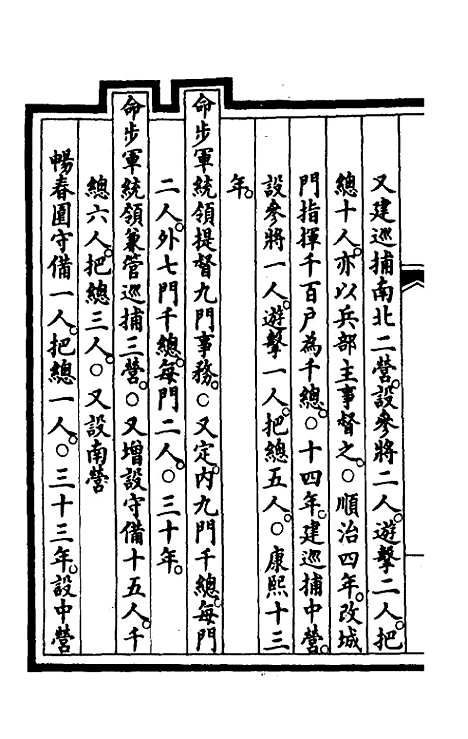 又建巡捕南北二營。設參將二人。遊擊二人。把
總十人。亦以兵部主事督之。○順治四年。改城
門指揮千百戶為千總。○十四年。建巡捕中營。
設參將一人。遊擊一人。把總五人。○康熙十三
年。
命步軍統領提督九門事務。○又定內九門千總。每門
二人。外七門千總。每門二人。○三十年。
命步軍統領兼管巡捕三營。○又增設守備十五人。千
總六人。把總三人。○又設南營
暢春園守備一人。把總一人。○三十三年。設中營